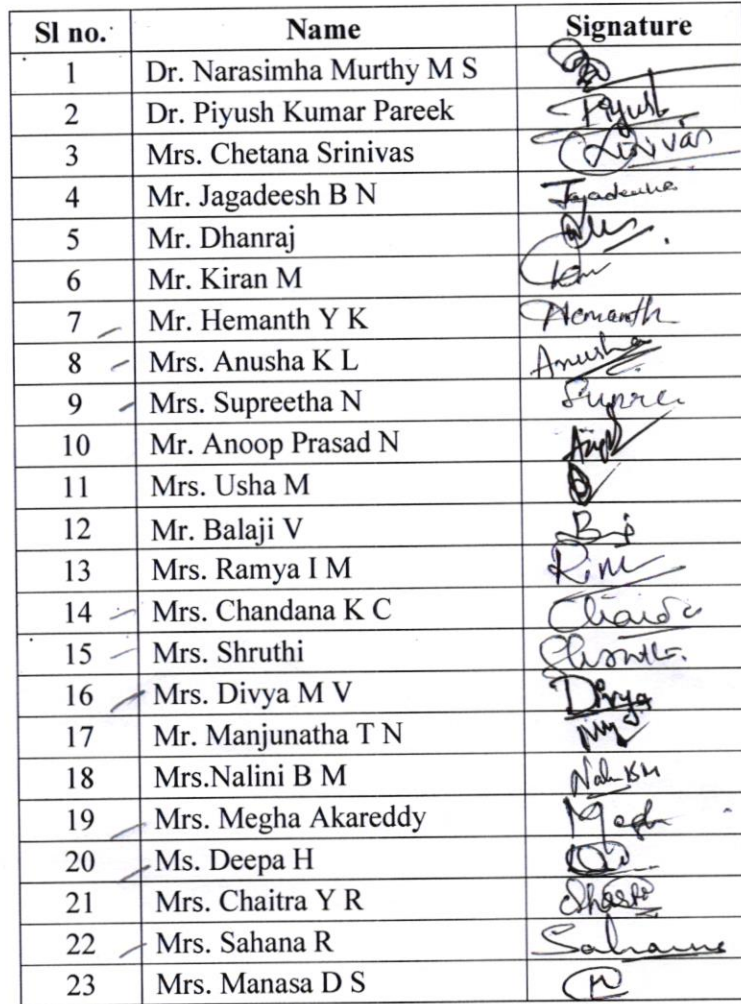 Sl no. Name Signature
1 Dr. Narasimha Murthy M S
2 Dr. Piyush Kumar Pareek Piyush
3 Mrs. Chetana Srinivas Srinivas
4 Mr. Jagadeesh B N Jagadeesha
5 Mr. Dhanraj
6 Mr. Kiran M
7 Mr. Hemanth Y K Hemanth
8 Mrs. Anusha K L Anusha
9 Mrs. Supreetha N Supree
10 Mr. Anoop Prasad N
11 Mrs. Usha M
12 Mr. Balaji V
13 Mrs. Ramya I M
14 Mrs. Chandana K C
15 Mrs. Shruthi
16 Mrs. Divya M V Divya
17 Mr. Manjunatha T N
18 Mrs.Nalini B M
19 Mrs. Megha Akareddy Megha
20 Ms. Deepa H
21 Mrs. Chaitra Y R
22 Mrs. Sahana R Sahana
23 Mrs. Manasa D S